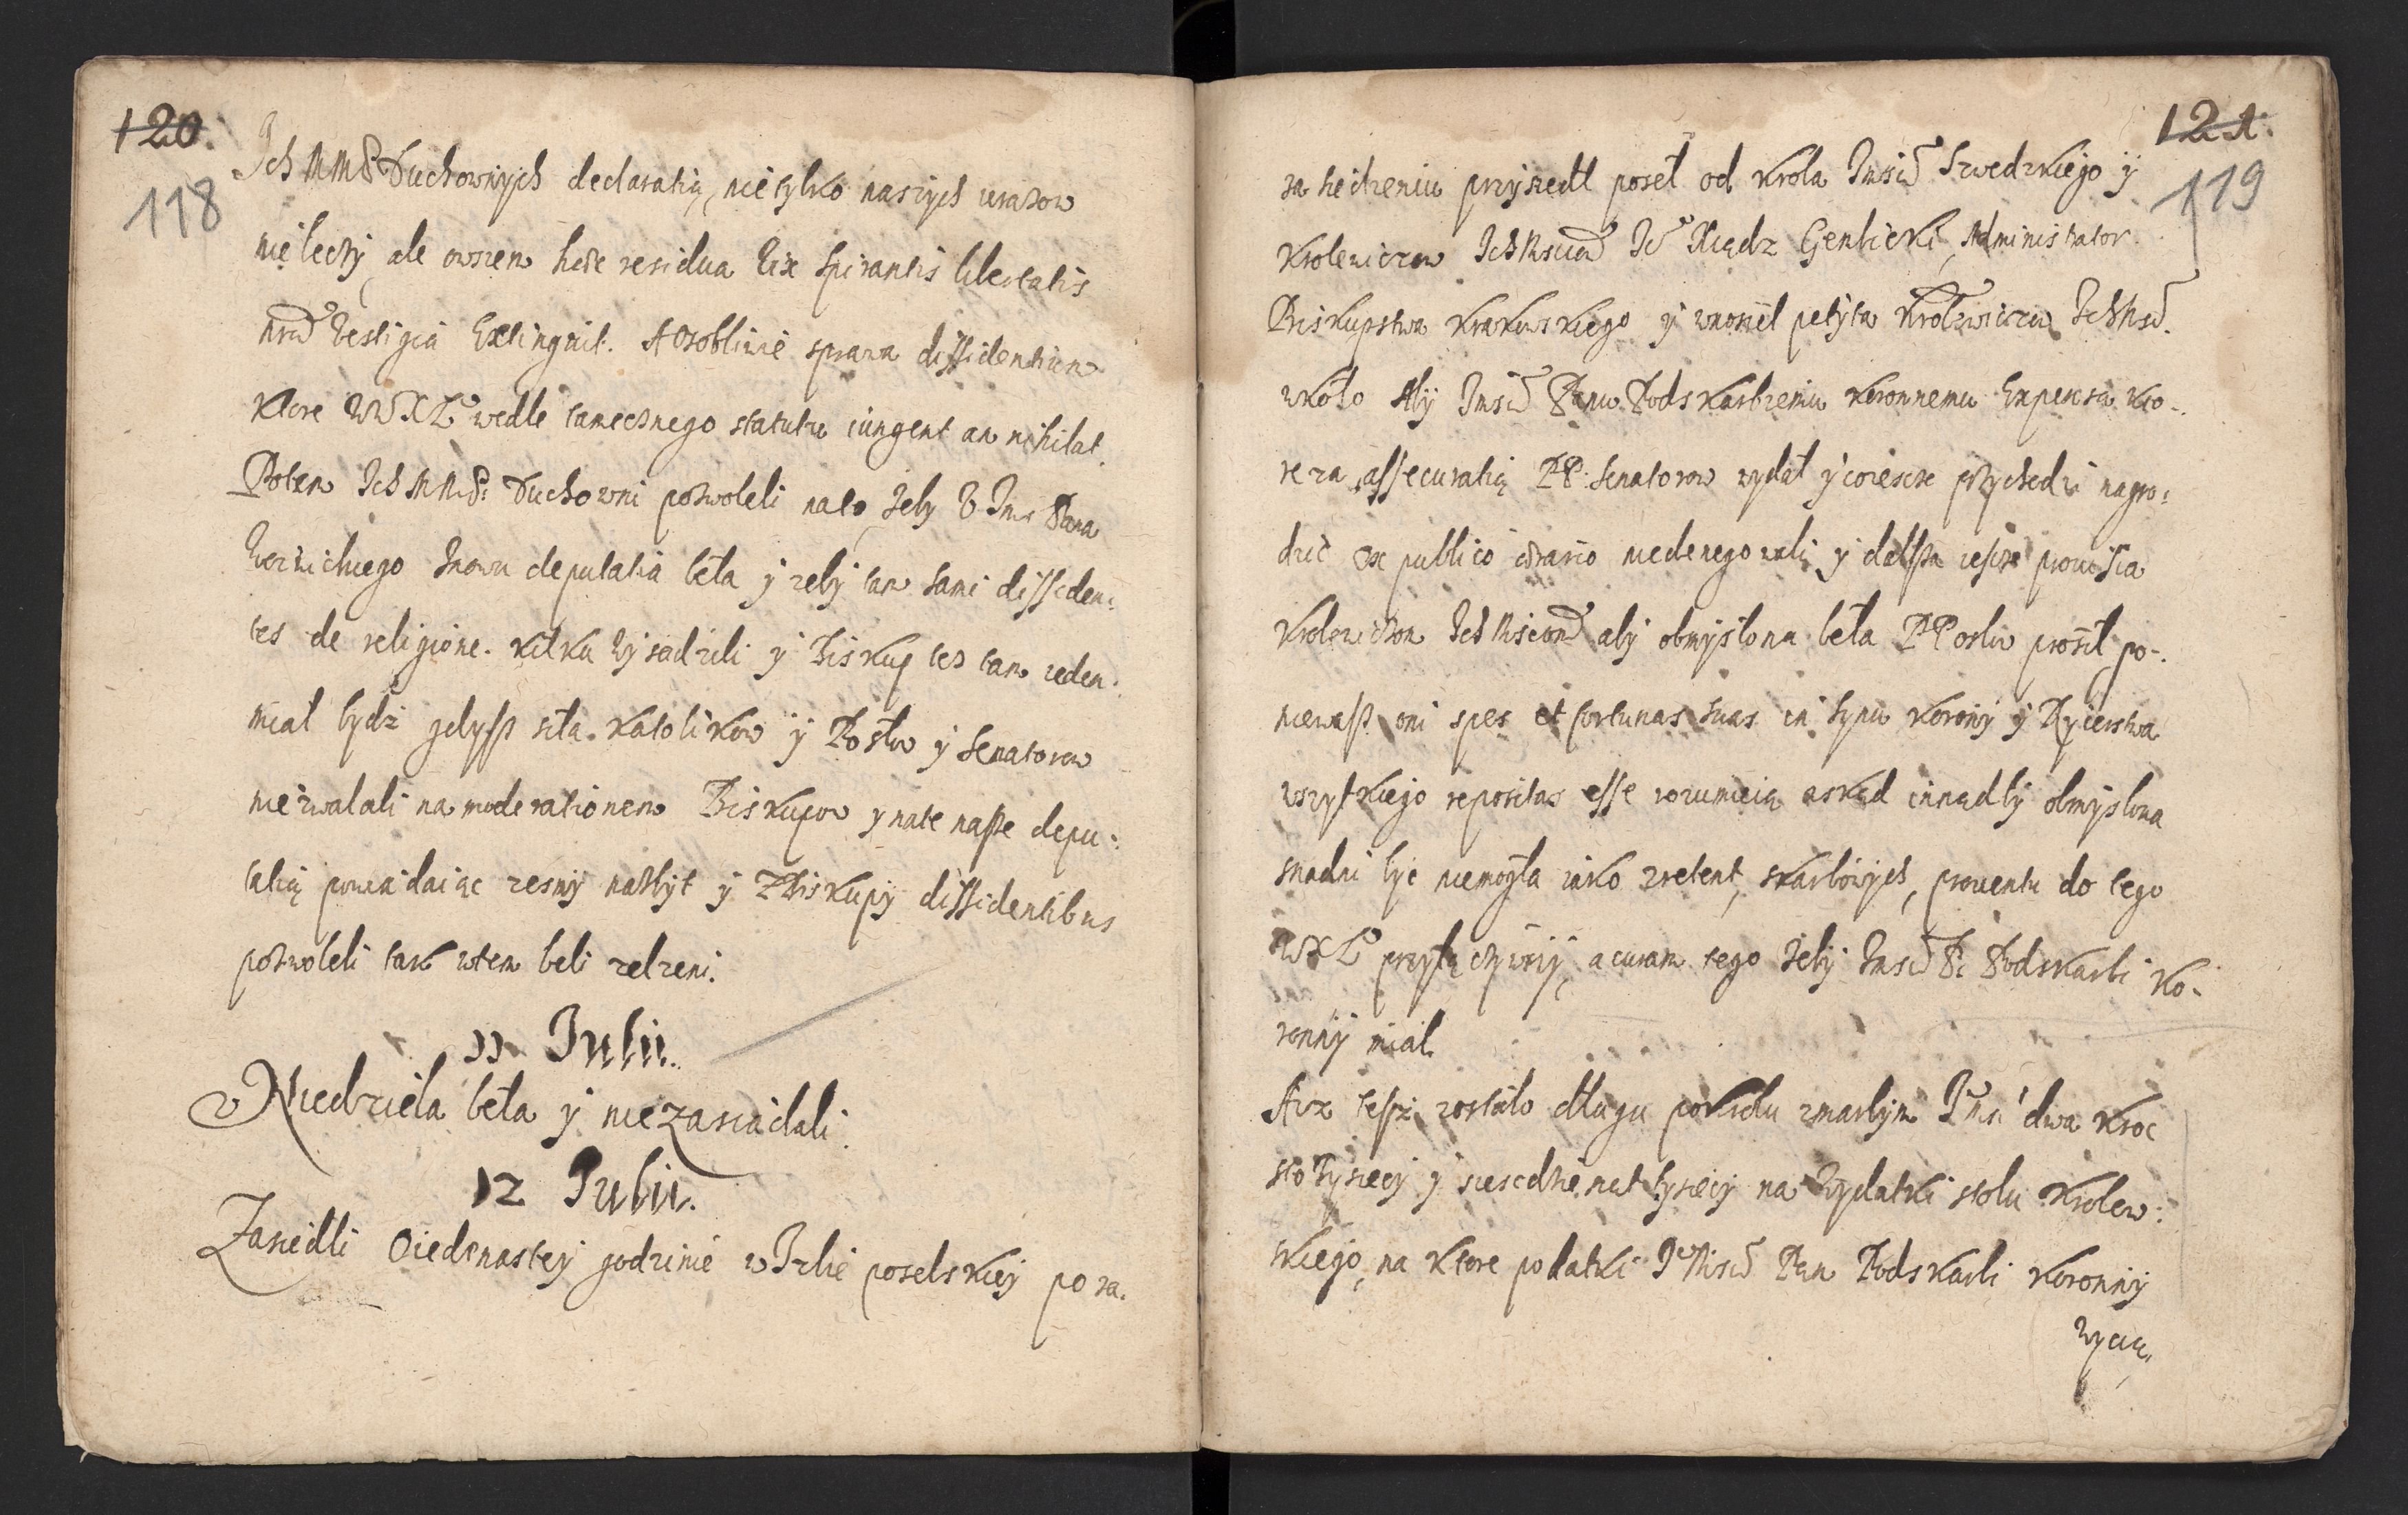 120.
118
Ich MM P Duchownych declaratią, nie tylko naszych urazow
nie leczy, ale owszem hęc residua vix spirantis libertatis
vestigia Extinguit. A Osobliwie sprawa dissidentium
ktore WWXL wedle tamecznego statutu iungent an nihilat.
Potem Ich MM P: Duchowni pozwoleli na to zeby V Jm Pana
znowu deputatia beła y zeby tam sami dissiden:
tes de religione. kilku wysadzili y Biskup tes tam ieden.
miał bydz gdysz siła Katolikow y Posłow y Senatorow
niezwalali na moderationem Biskupow y na te nasze depu:
tatią powiadaiąc zesmy nazbyt y z Biskupy dissidentibus
pozwoleli tak wtem beli zelzeni.
11 Julii.
Niedziela beła y nie zasiadali.
12 Julii.
Zasiedli O iedenastey godzinie w Izbie poselskiey po za.
121.
119
za siedzeniu przyszedł poseł od Krola Jmsci Szwedzkiego y
Krolewicow Ich Msciow Je Xiądz Gembicki, Administrator
Biskupstwa Krakowskiego y wnosieł petyta Krolewicow Ich Msc.
wkoło Aby Jmsci Panu Podskarbiemu Koronnemu Expensa kto-
re za assecuratią PP: Senatorow wydał y ieszcze przychodzi nagro:
dzic ex publico ærario niedenegowali y dalsza ieszcze prouisia
Krolewicow Ich Msciow aby obmyslona beła PPosłow prosił po-
niewasz oni spes et fortunas suas in sinu Korony y Rycerstwa
wszytkiego repositas esse rozumieią a skąd inąd by obmyslona
snadni byc niemogła iako z retent, skarbowych, prouentu do tego
WXL przyłączywszy, a curam tego zeby Jmsc P: Podskarbi Ko-
ronny miał.
A isz tesz zostało długu po Krolu zmarłym Jmci dwa kroc
sto tysiecy y siescdziesiat tysiecy na wydatki stołu Krolew:
skiego, na ktore podatki Je Msc Pan Podskarbi Koronny